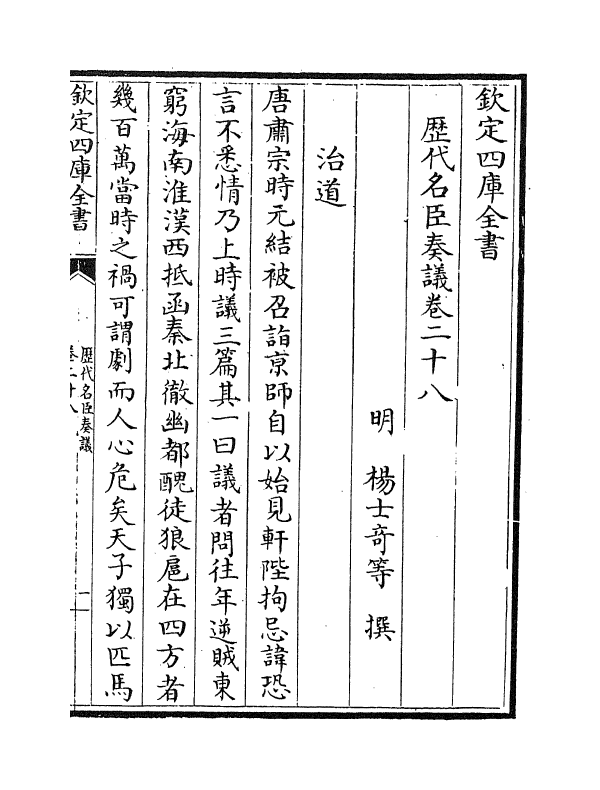 欽定四庫全書
歷代名臣奏議卷二十八
明 楊士奇等 撰
治道
唐肅宗時元結被召詣京師自以始見軒陛拘忌諱恐
言不悉情乃上時議三篇其一曰議者問往年逆賊東
窮海南淮漢西抵函秦北徹幽都醜徒狼扈在四方者
幾百萬當時之禍可謂劇而人心危矣天子獨以匹馬
欽定四庫全書
歷代名臣奏議
卷二十八
一